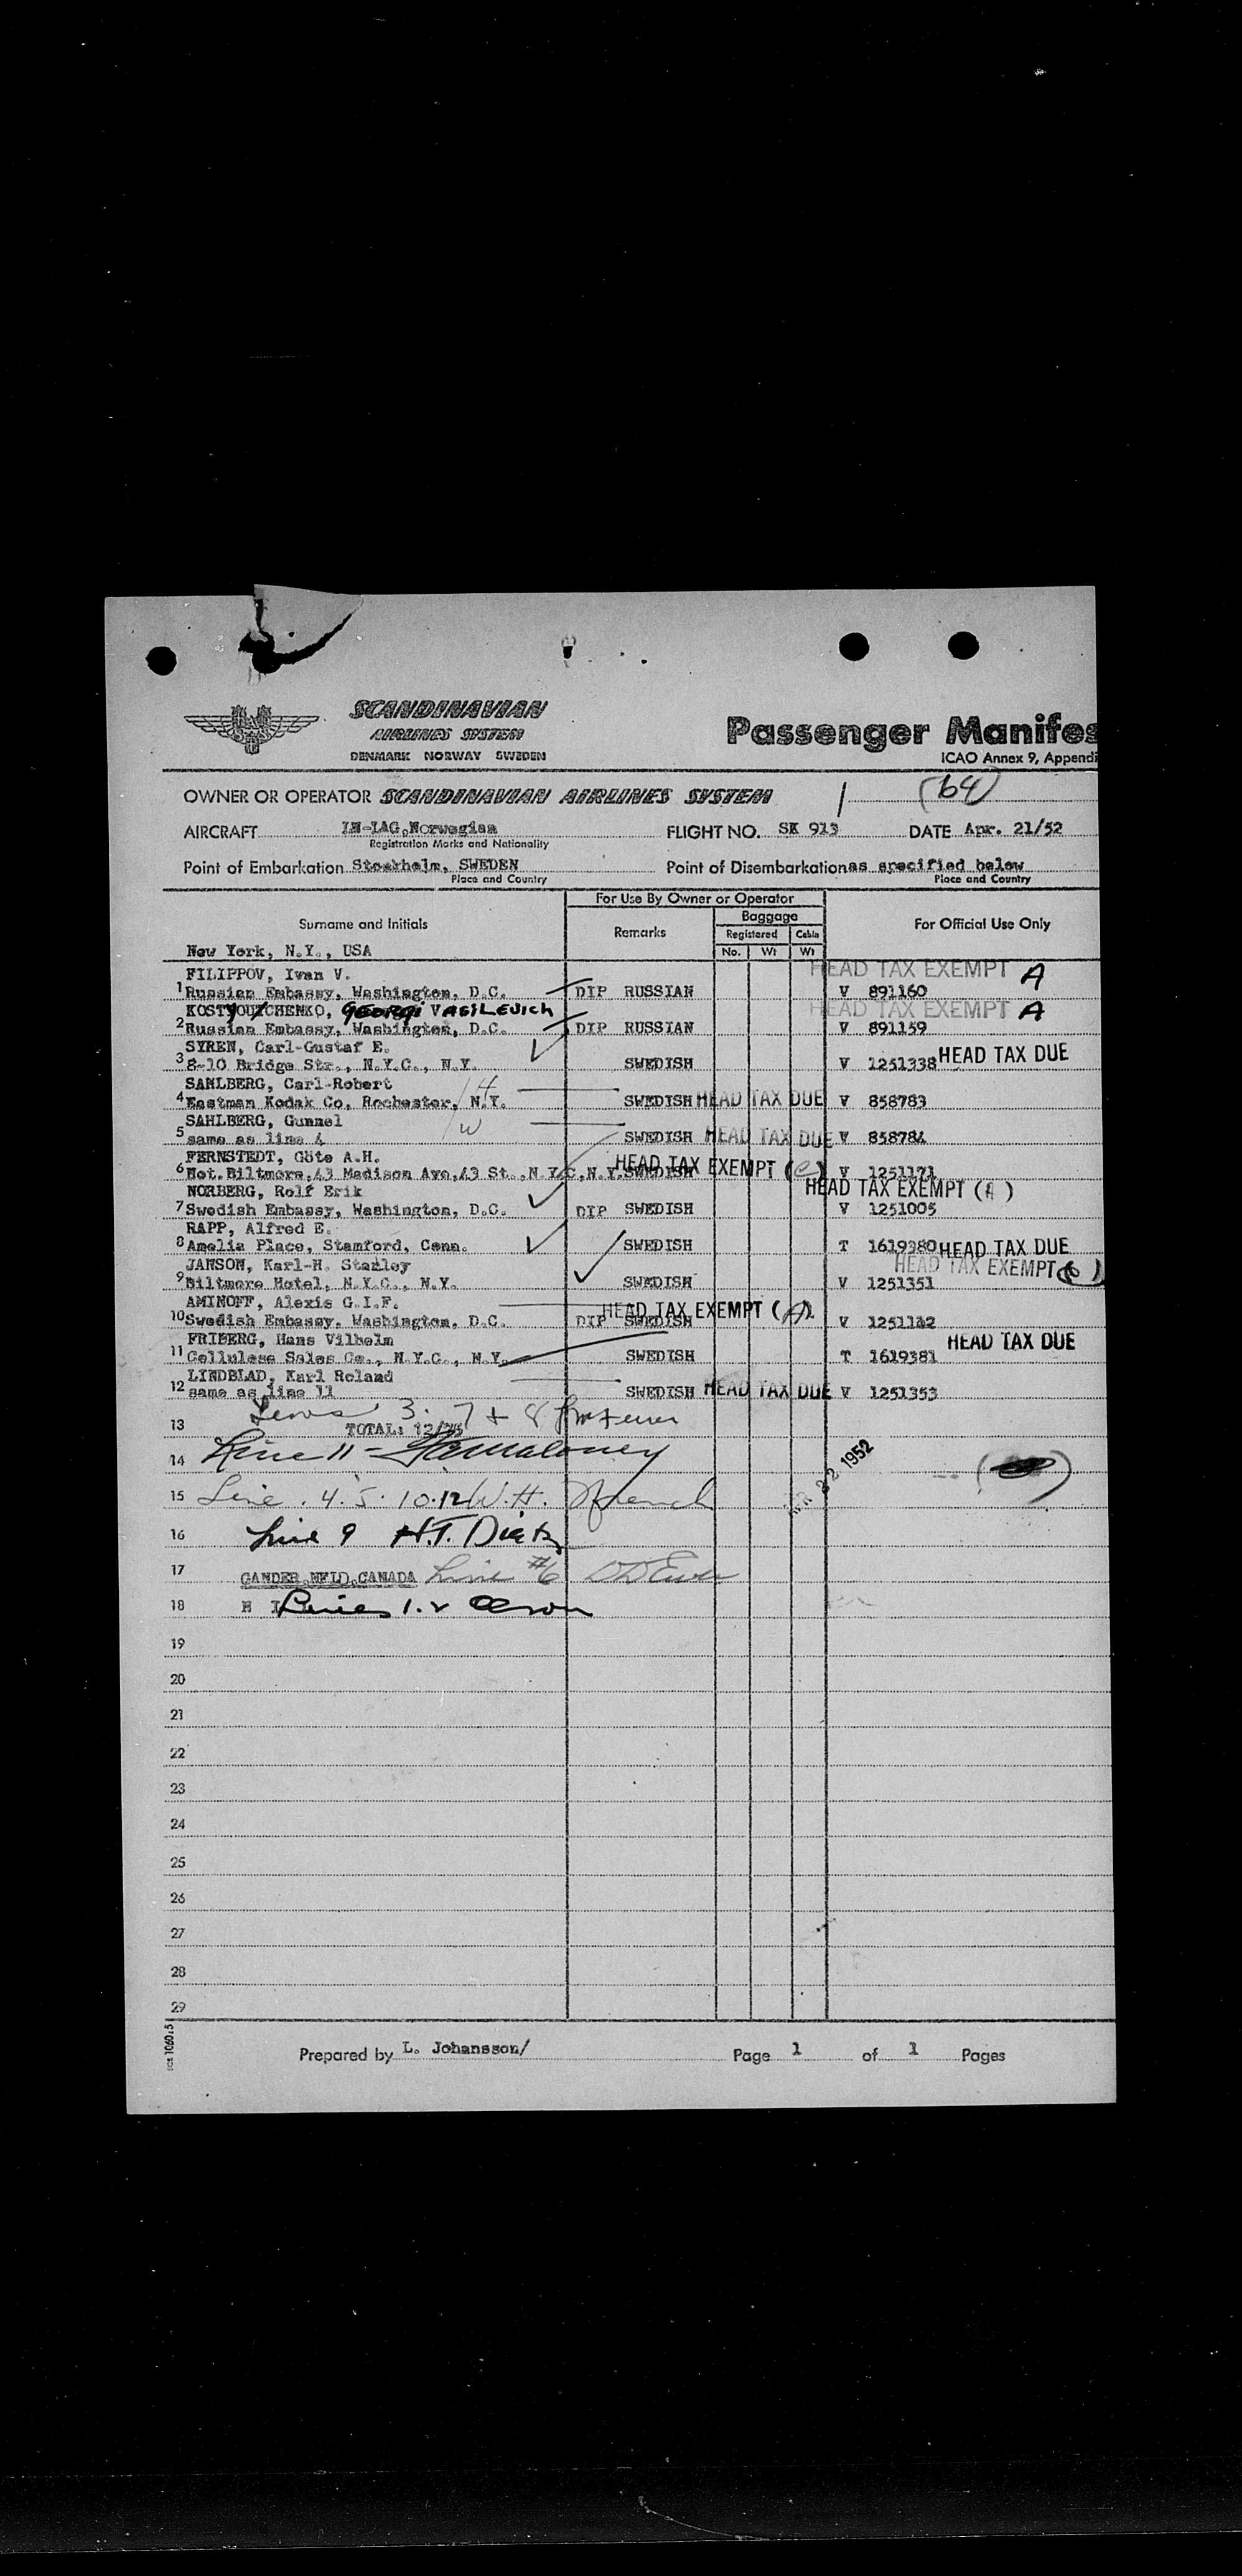 SCANDINAVIAN
AIRLINES SYSTEM
DENMARK NORWAY SWEDEN
Passenger Manifes
ICAO Annex 9, Appendi
OWNER OR OPERATOR SCANDINAVIAN AIRLINES SYSTEM
(64)
AIRCRAFT LN-LAG, Norwegian
Registration Marks and Nationality
FLIGHT NO. SK 913 DATE Apr. 21/52
Point of Embarkation Stockholm, SWEDEN
Place and Country
Point of Disembarkation as specified below
Place and Country
For Use By Owner or Operator
Surname and Initials Remarks Baggage For Official Use Only
Registered Cabin
No. Wt Wt
New York, N.Y., USA
FILIPPOV, Ivan V. HEAD TAX EXEMPT A
1 Russian Embassy, Washington, D.C. DIP RUSSIAN V 891160
KOSTYOUCHENKO, GEORGI VASILEVICH HEAD TAX EXEMPT A
2 Russian Embassy, Washington, D.C. DIP RUSSIAN V 891159
SYREN, Carl-Gustaf E.
3 8-10 Bridge Str., N.Y.C., N.Y. SWEDISH V 1251338 HEAD TAX DUE
SAHLBERG, Carl-Robert H
4 Eastman Kodak Co, Rochester, N.Y. SWEDISH HEAD TAX DUE V 858783
SAHLBERG, Gunnel W
5 same as line 4 SWEDISH HEAD TAX DUE V 858784
FERNSTEDT, Göte A.H. HEAD TAX EXEMPT (C)
6 Hot. Biltmore, 43 Madison Ave, 43 St., N.Y.C, N.Y. SWEDISH V 1251171
NORBERG, Rolf Erik HEAD TAX EXEMPT (A)
7 Swedish Embassy, Washington, D.C. DIP SWEDISH V 1251005
RAPP, Alfred E.
8 Amelia Place, Stamford, Conn. SWEDISH T 1619380 HEAD TAX DUE
JANSON, Karl-H. Stanley HEAD TAX EXEMPT
9 Biltmore Hotel, N.Y.C., N.Y. SWEDISH V 1251351
AMINOFF, Alexis G.I.F. HEAD TAX EXEMPT (A)
10 Swedish Embassy, Washington, D.C. DIP SWEDISH V 1251142
FRIBERG, Hans Vilhelm HEAD TAX DUE
11 Cellulose Sales Co., N.Y.C., N.Y. SWEDISH T 1619381
LINDBLAD, Karl Roland
12 same as line 11 SWEDISH HEAD TAX DUE V 1251353
3. 7 + 8
13 TOTAL: 12/
14 Line 11 - Maloney
APR 22 1952
15 Line . 4. 5. 10. 12 W.H. French
16 Line 9 H.T. Dietz
17 GANDER, NFLD, CANADA Line #6
18 Lines 1. 2 Olson
19
20
21
22
23
24
25
26
27
28
29
Prepared by L. Johansson/ Page 1 of 1 Pages